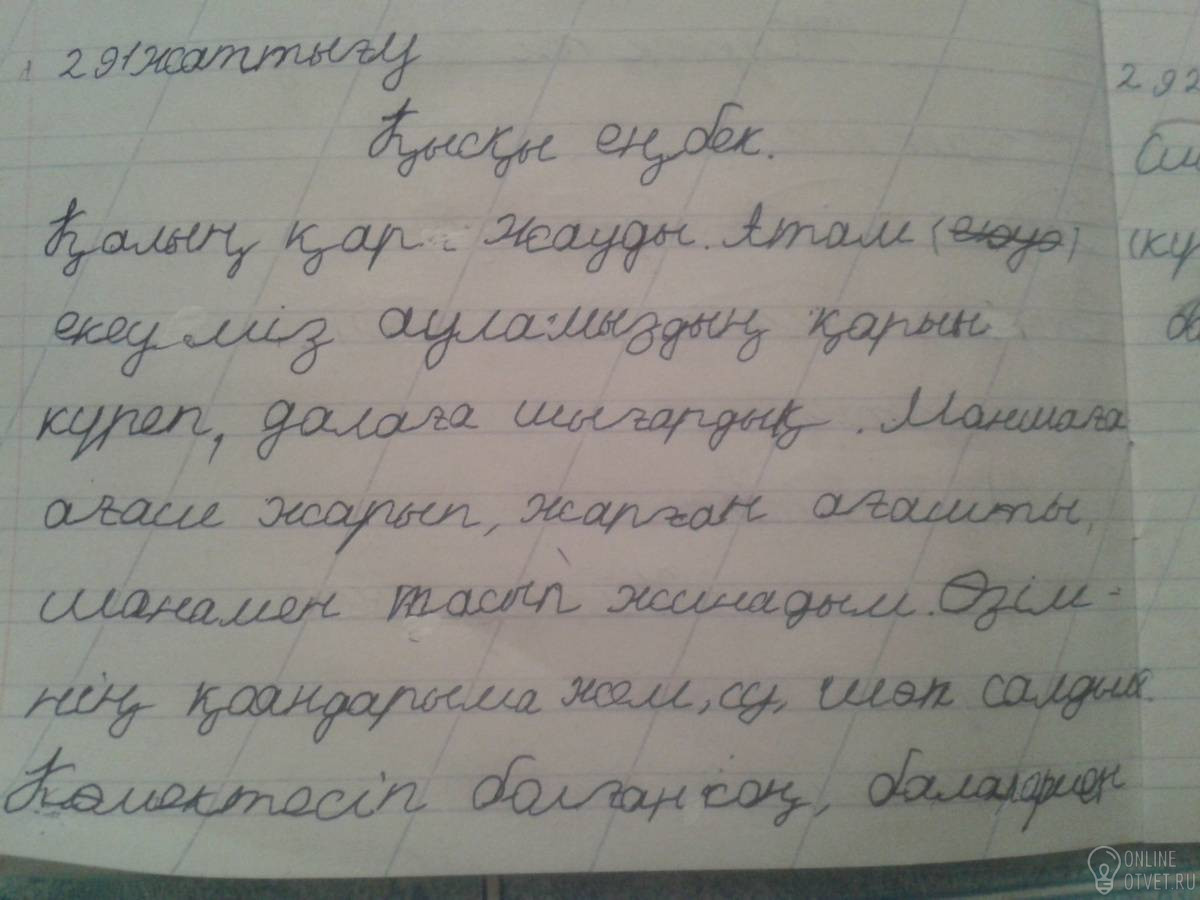 291 жаттығу
Қысқы еңбек.
Қалың қар жауды. Атам (екеуі)
екеу міз ауламыздың қарын
күреп, далаға шығардық. Моншаға
ағаш жарып, жарған ағашты,
шанамен тасып жинадым. Өзім-
нің қоандарыма жем, су, шөп салдым.
Көмектесіп болған соң, балалармен
292
(кү
ONLINE
OTVET.RU